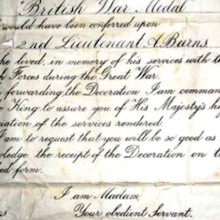 "British War Medal
would have been conferred upon
2nd Lieutenant A Burns
he lived, in memory of his services with t
h Forces during the Great War.
forwarding the Decoration I am comman
King to assure you of His Majesty's hi
iation of the services rendered.
I am to request that you will be so good as
ledge the receipt of the Decoration on t
ed form.
I am Madam,
Your obedient Servant.